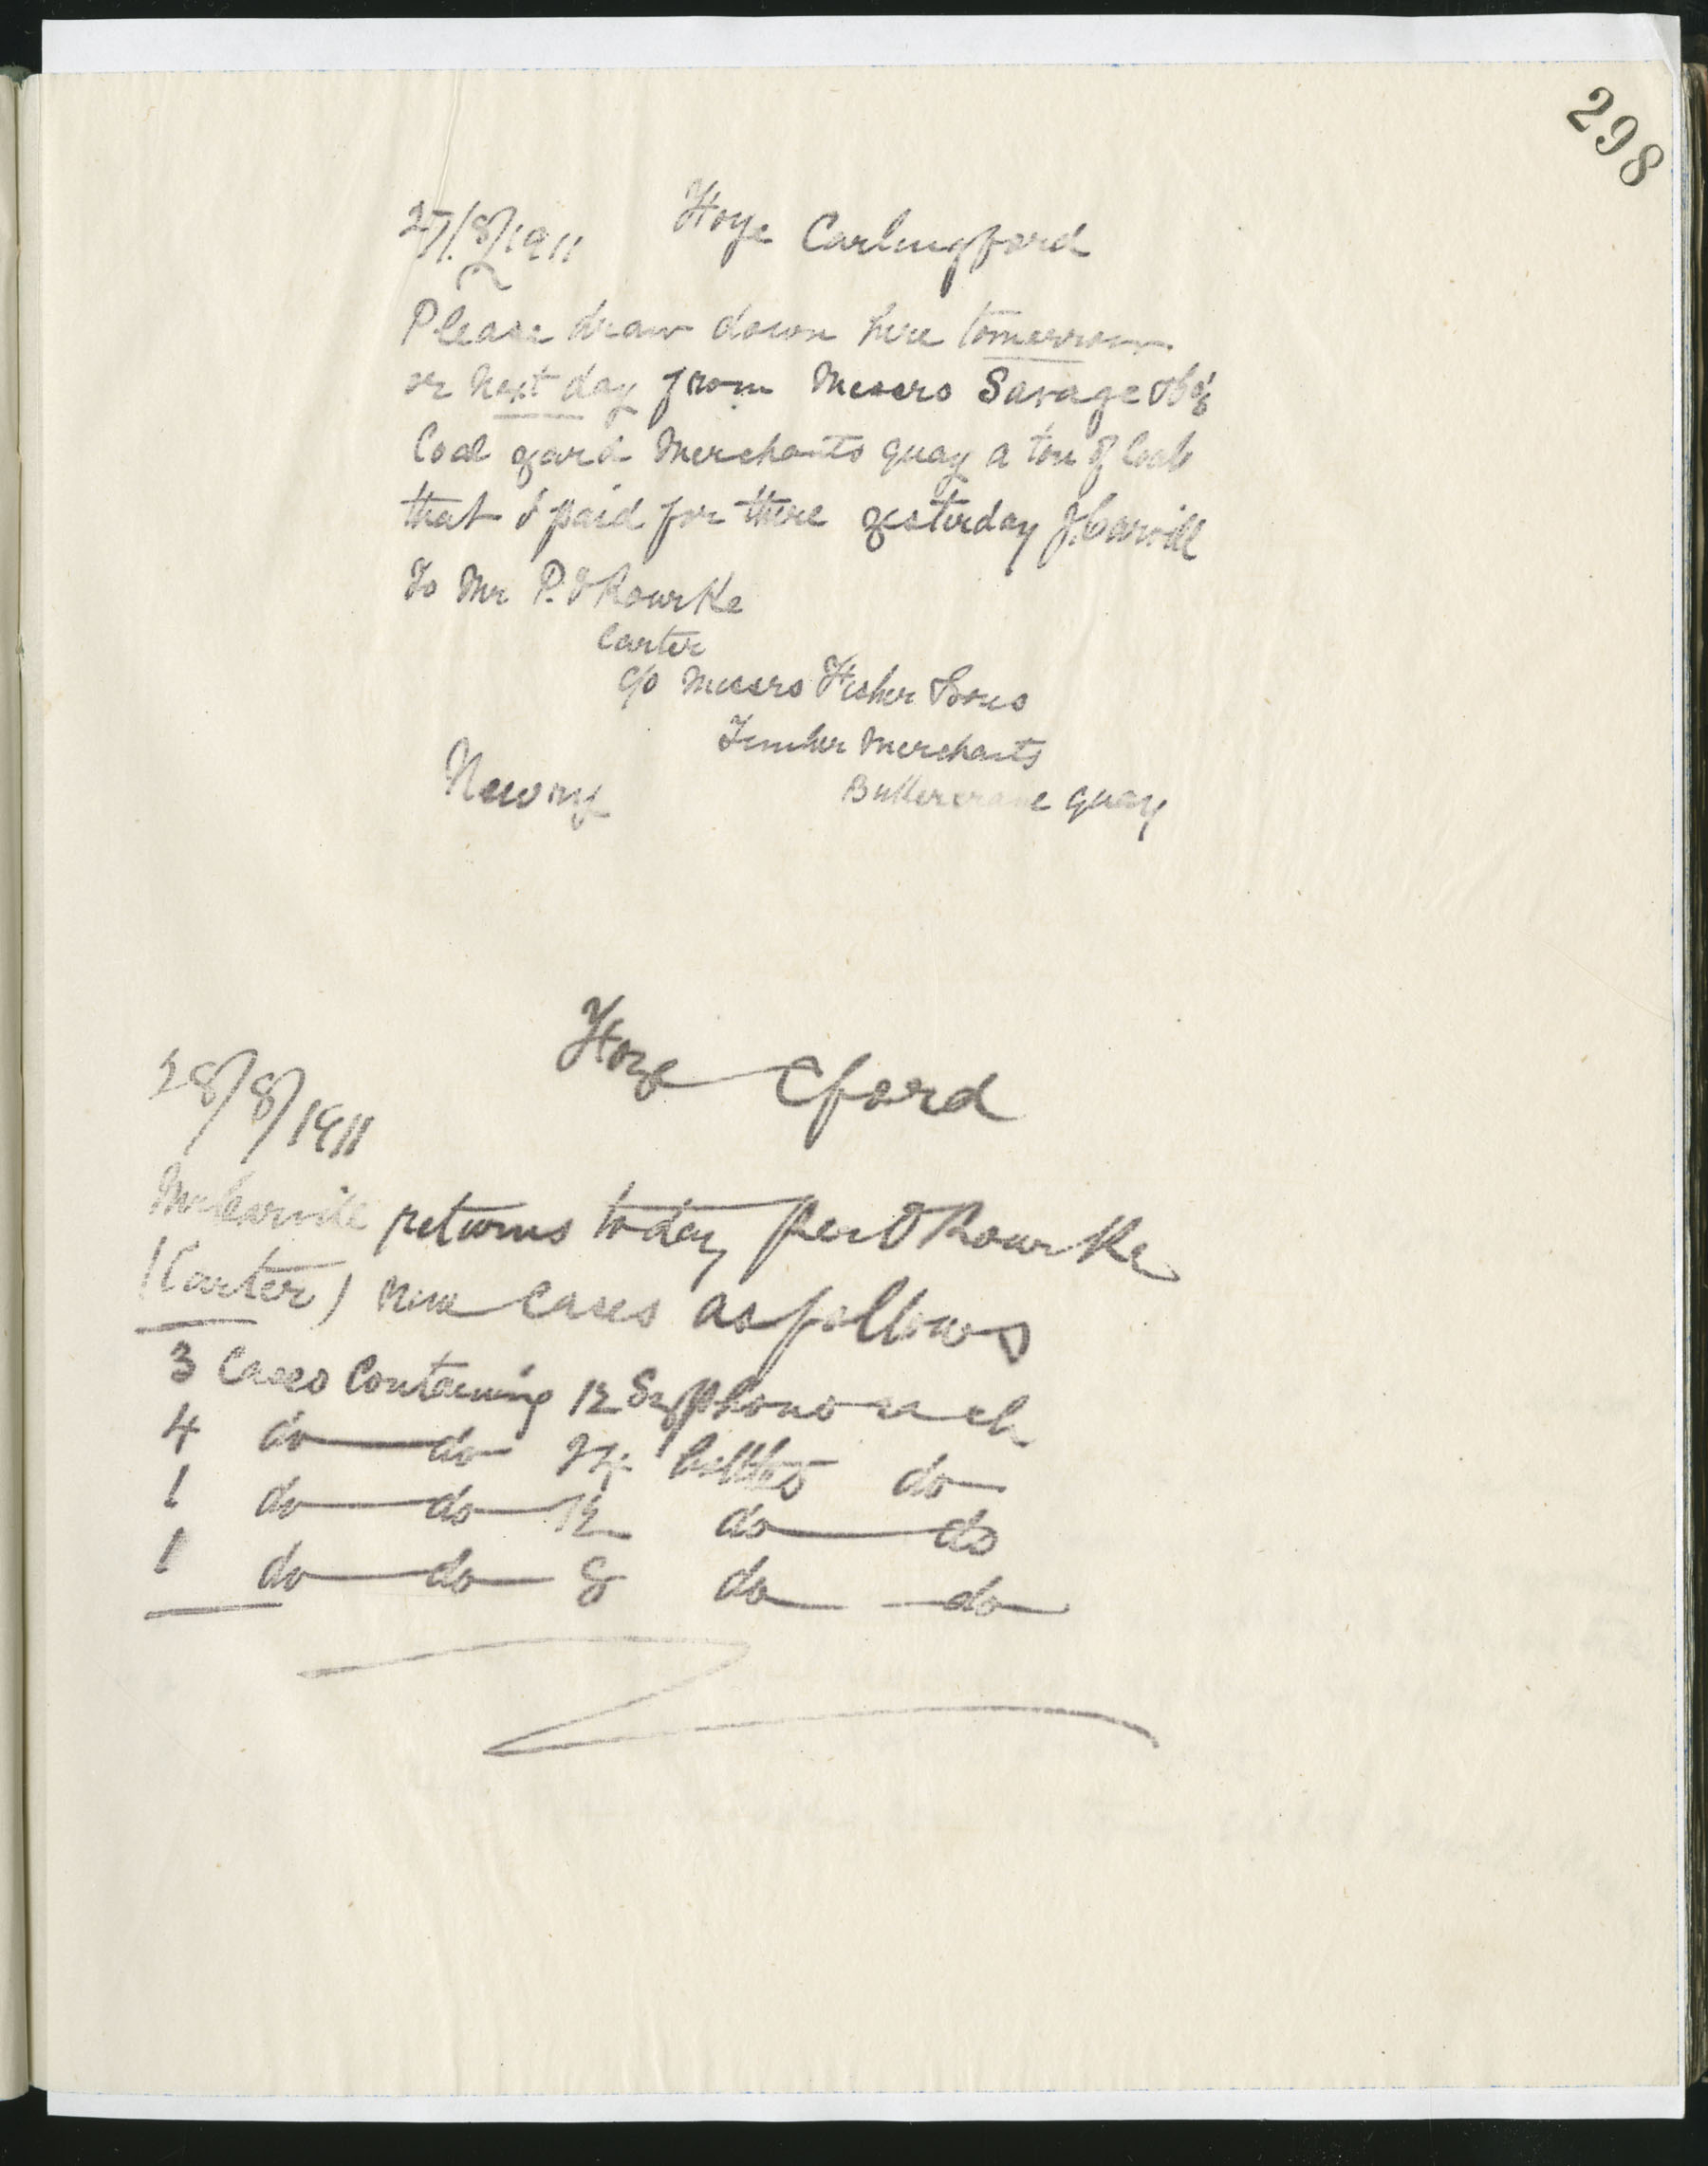 298
27/8/1911 Hoye Carlingford
Please draw down here tomorrow
or next day from Messrs Savage
Coal yard Merchants quay a ton of Coal
that I paid for there yesterday J. Carvill
To Mr P. O Rourke
Carter
c/o Messrs Fisher & Sons
Timber Merchants
Newry Buttercrane quay
Hoye Cford
28/8/1911
Mr Carvill returns today per O Rourke
(Carter) nine Cases as follows
3 Cases Containing 12 Syphons each
4 do do 24 bottles do
1 do do 12 do do
1 do do 8 do do